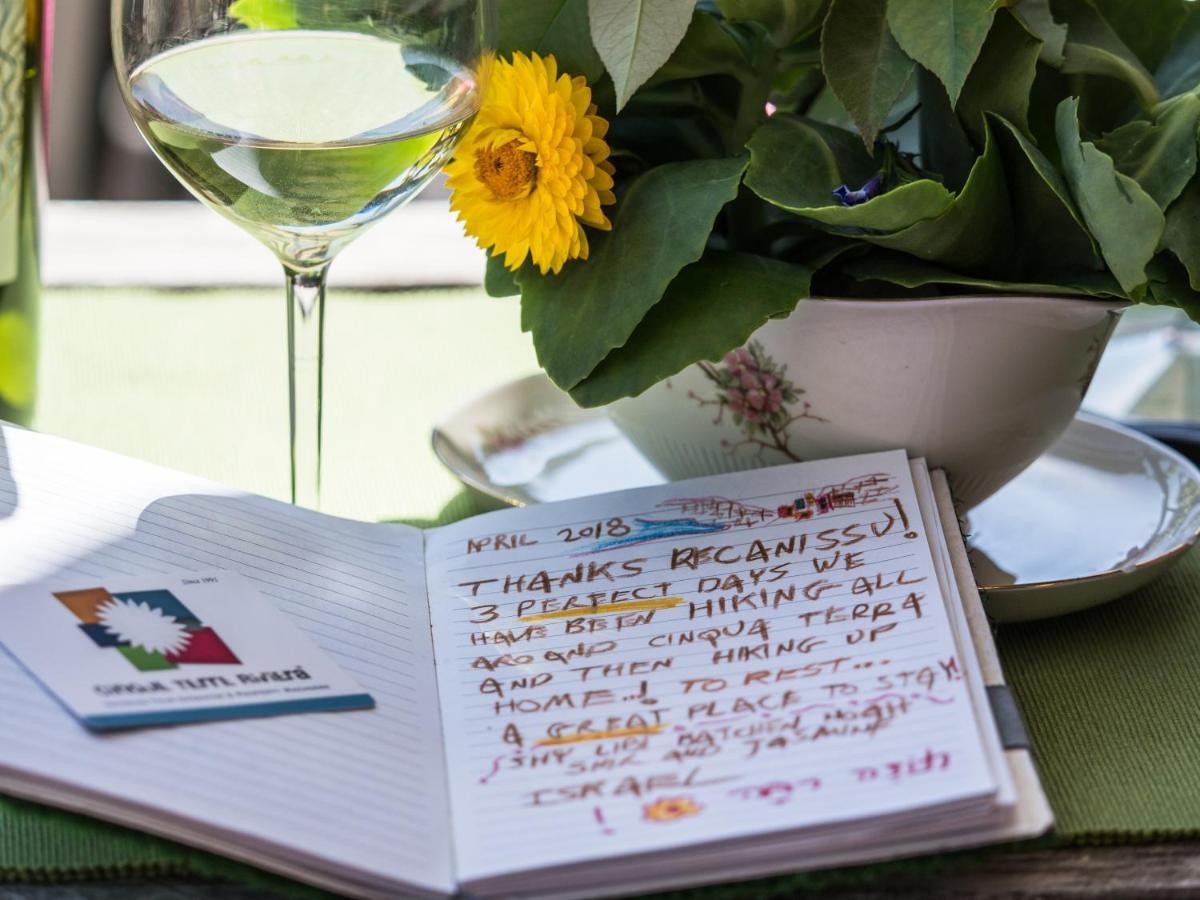 Since 1991
CINQUE TERRE Riviera
APRIL 2018
THANKS RECANISSU!
3 PERFECT DAYS WE
HAVE BEEN HIKING ALL
AROAND CINQUA TERRA
AND THEN HIKING UP
HOME..! TO REST...
A GREAT PLACE TO STAY!
SHY LIBI
AND JASMINE
ISRAEL
!